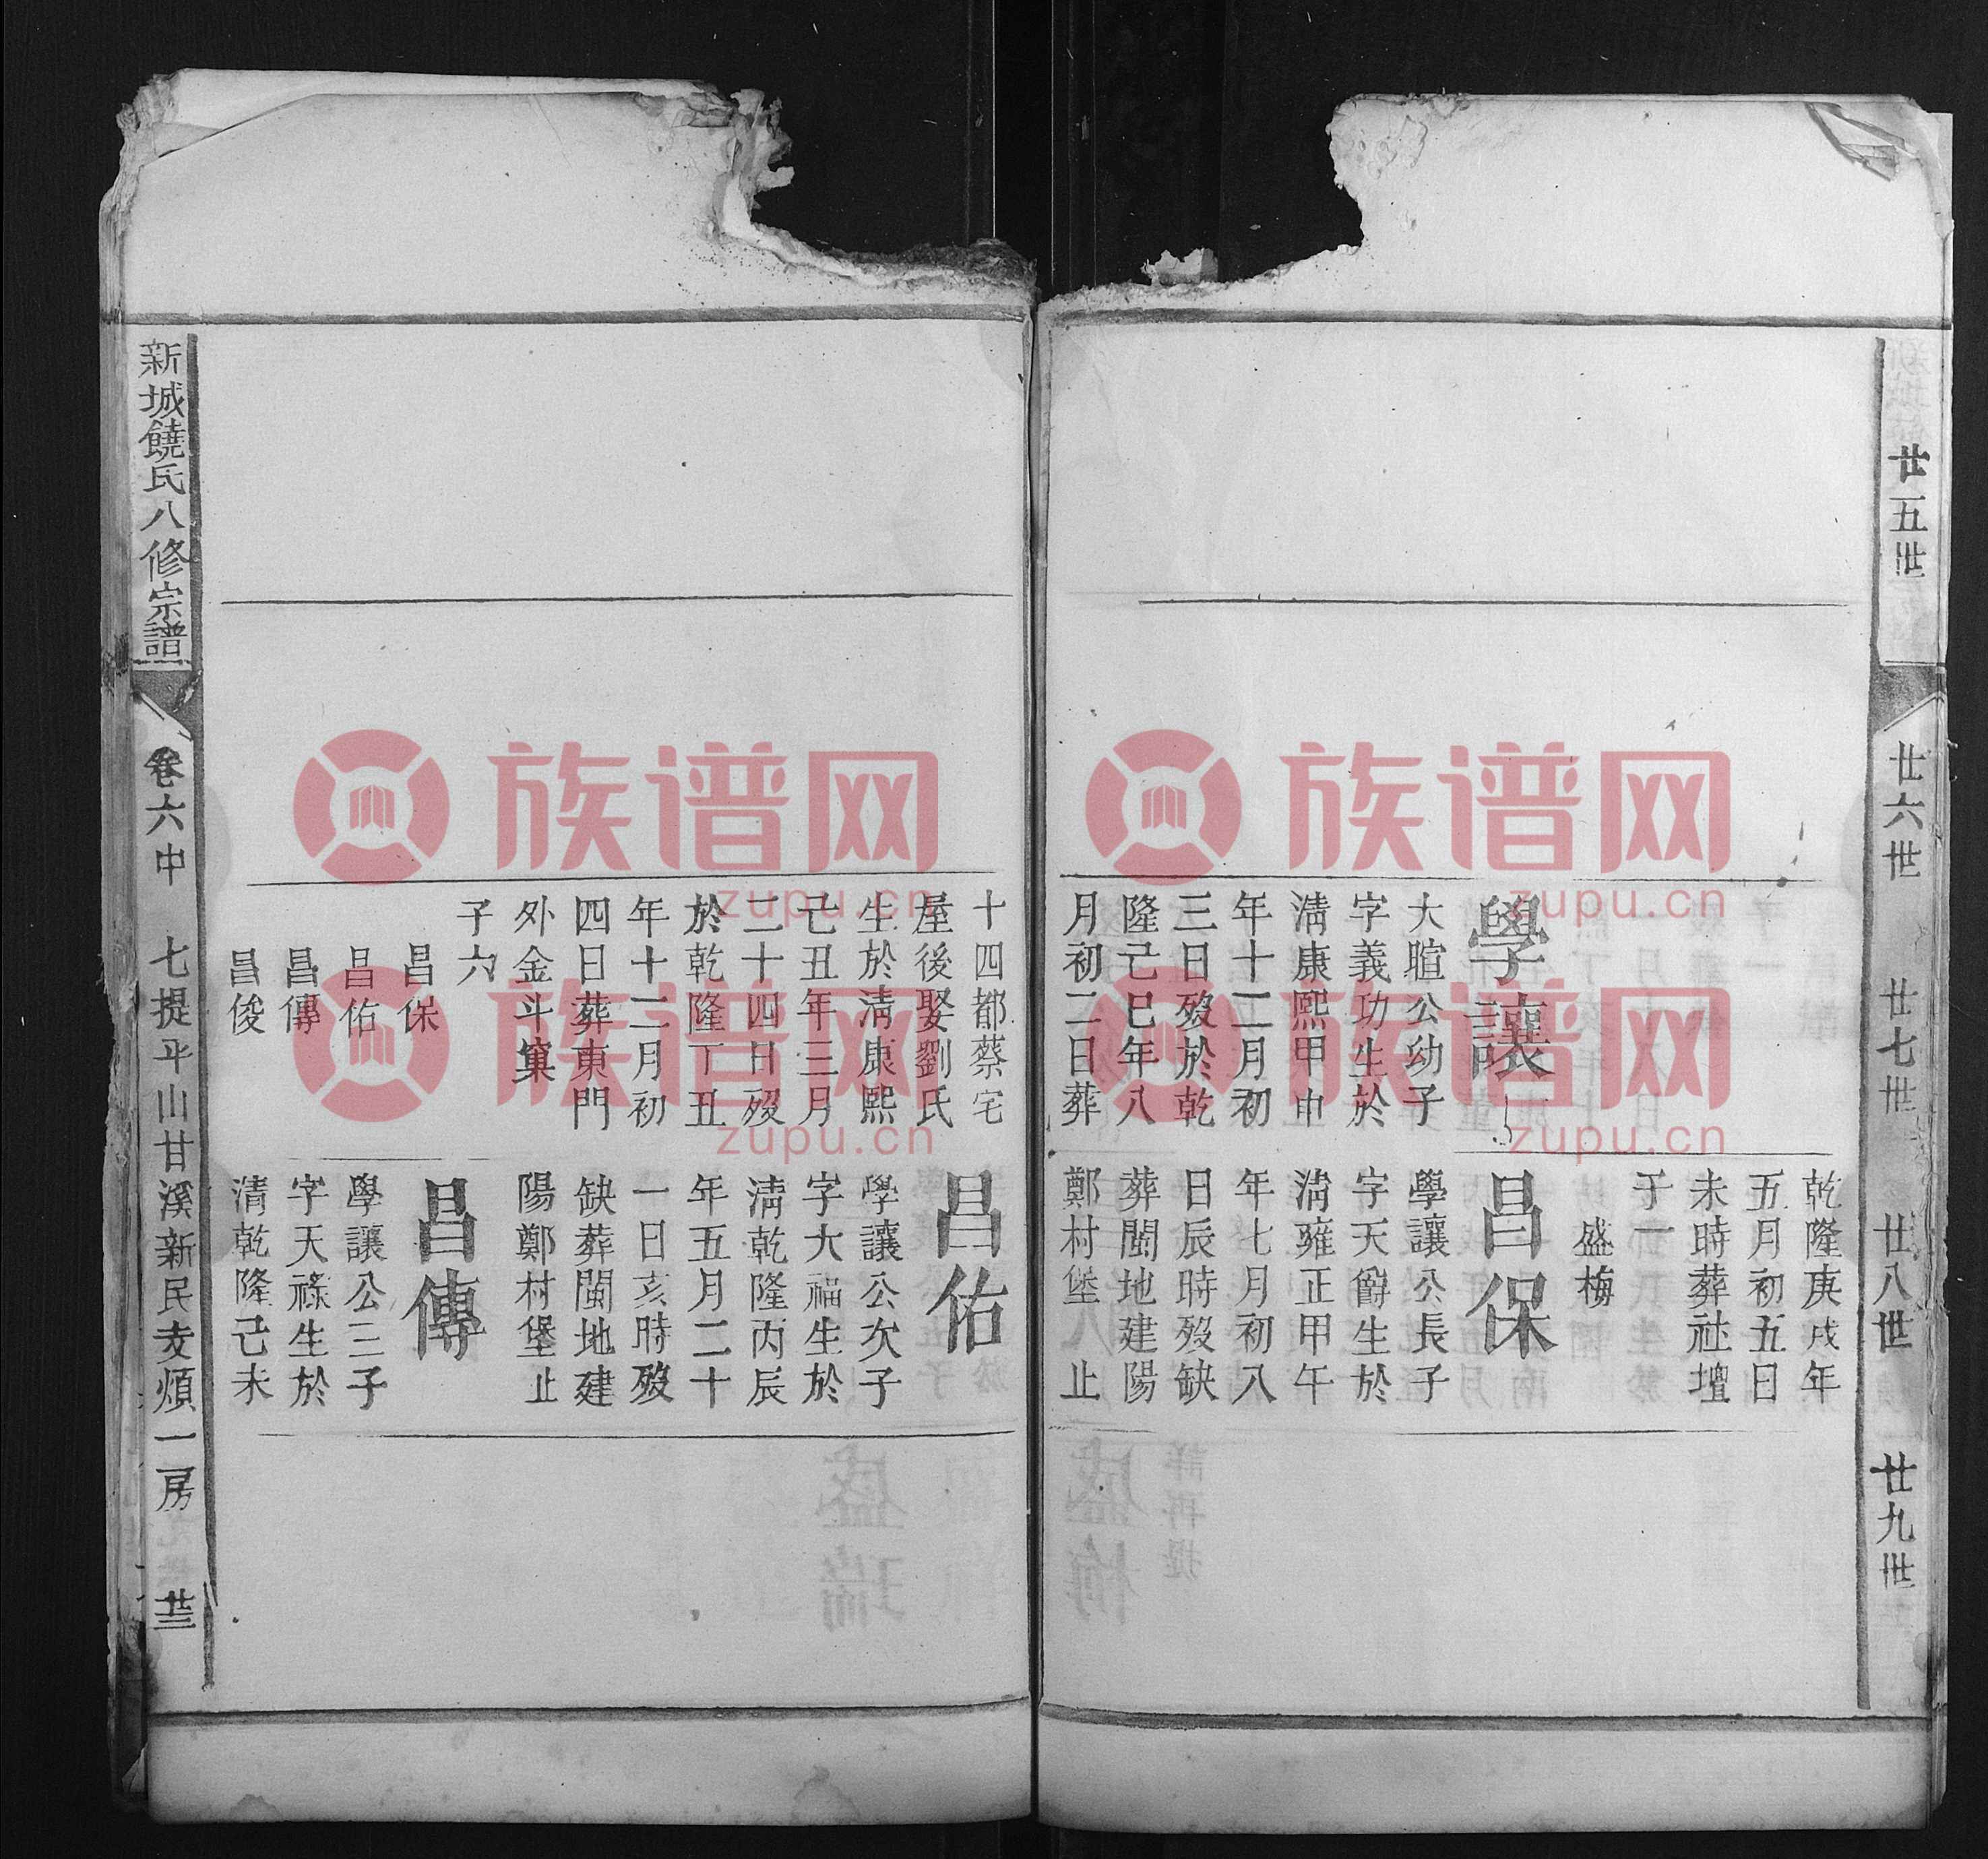 廿五世
廿六世
廿七世
廿八世
廿九世
學讓
大暄公幼子
字義功生於
淸康熙甲申
年十二月初
三日歿於乾
隆己巳年八
月初二日葬
乾隆庚戌年
五月初五日
未時葬社壇
子一
盛梅
昌保
學讓公長子
字天爵生於
淸雍正甲午
年七月初八
日辰時歿缺
葬閩地建陽
鄭村堡 止
十四都蔡宅
屋後娶劉氏
生於淸康熙
己丑年三月
二十四日歿
於乾隆丁丑
年十二月初
四日葬東門
外金斗窠
子六
昌保
昌佑
昌傳
昌俊
昌佑
學讓公次子
字大福生於
淸乾隆丙辰
年五月二十
一日亥時歿
缺葬閩地建
陽鄭村堡止
昌傳
學讓公三子
字天祿生於
清乾隆己未
新城饒氏八修宗譜
卷六中
七提平山甘溪新民支煩一房
廿三
族谱网
zupu.cn
族谱网
zupu.cn
族谱网
zupu.cn
族谱网
zupu.cn